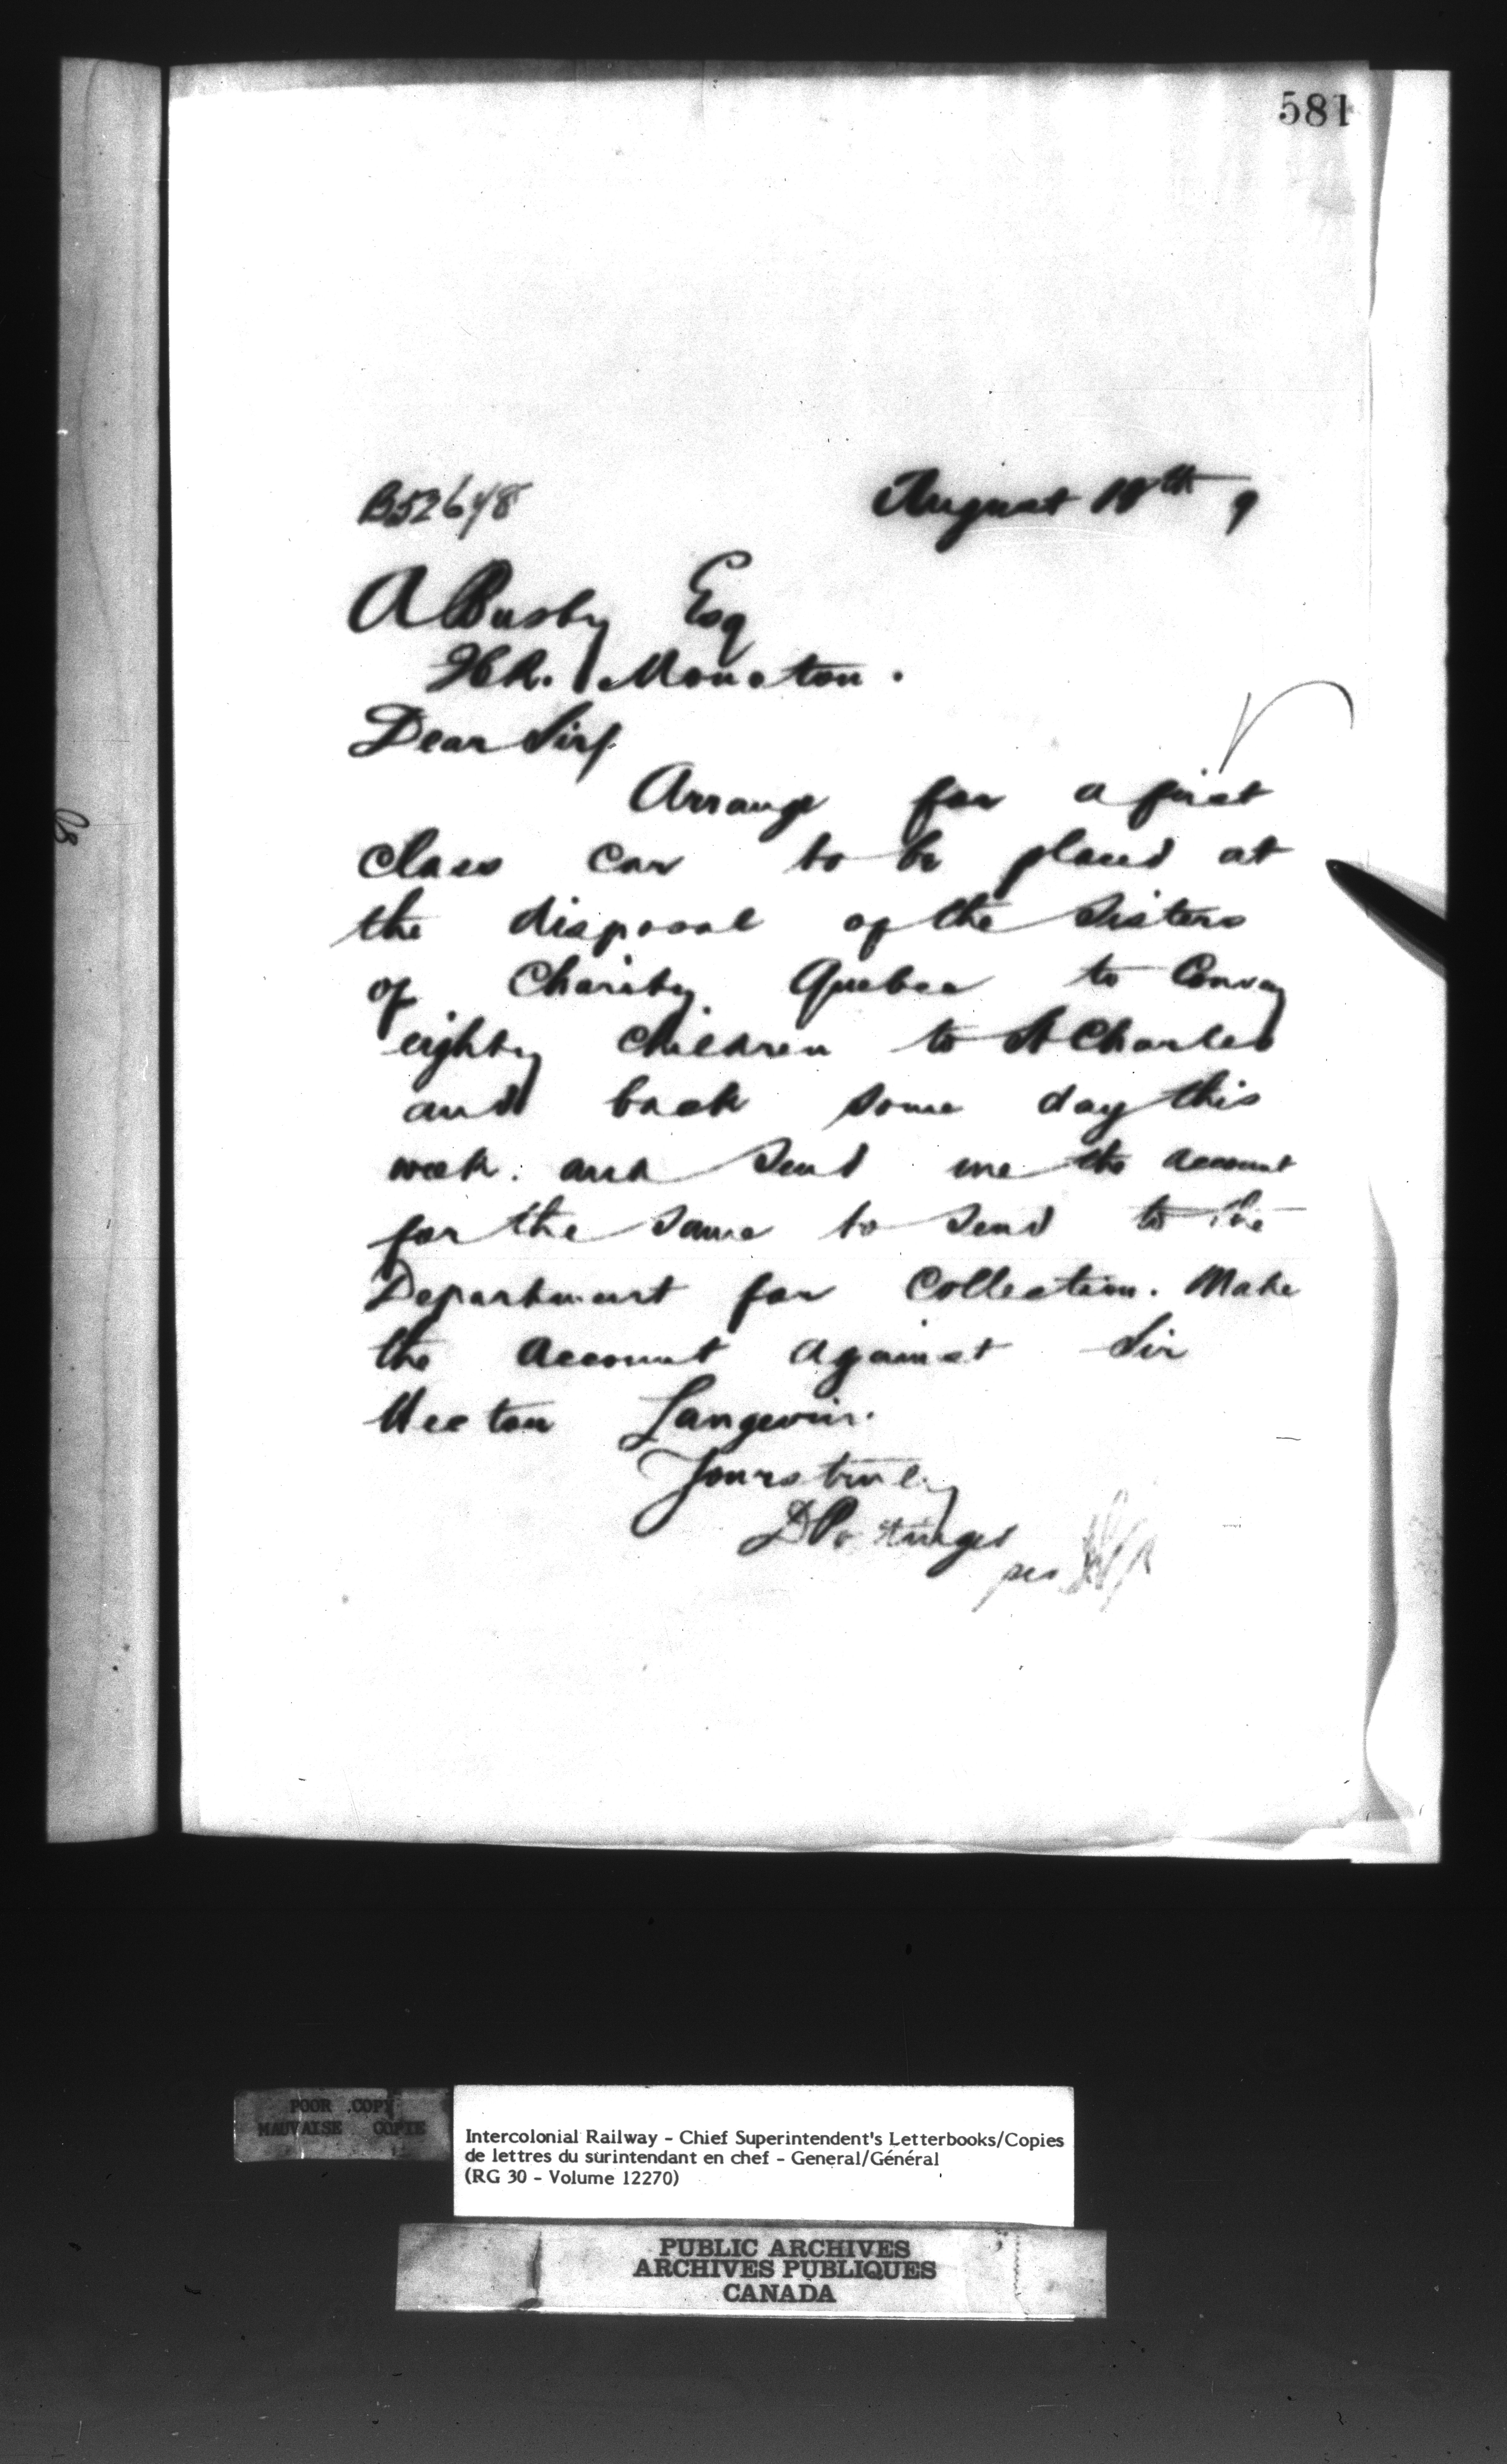 581
B52648
August 18th 9
A Busby Esq
ICR. Moncton.
Dear Sir/
Arrange for a first
class car to be placed at
the disposal of the Sisters
of Charity Quebec to Convey
eighty children to St Charles
and back some day this
week. and send me the account
for the same to send to the
Department for Collection. Make
the account against Sir
Hector Langevin.
Yours truly
D Pottinger
per
POOR COPY
MAUVAISE COPIE
Intercolonial Railway - Chief Superintendent's Letterbooks/Copies
de lettres du surintendant en chef - General/Général
(RG 30 - Volume 12270)
PUBLIC ARCHIVES
ARCHIVES PUBLIQUES
CANADA